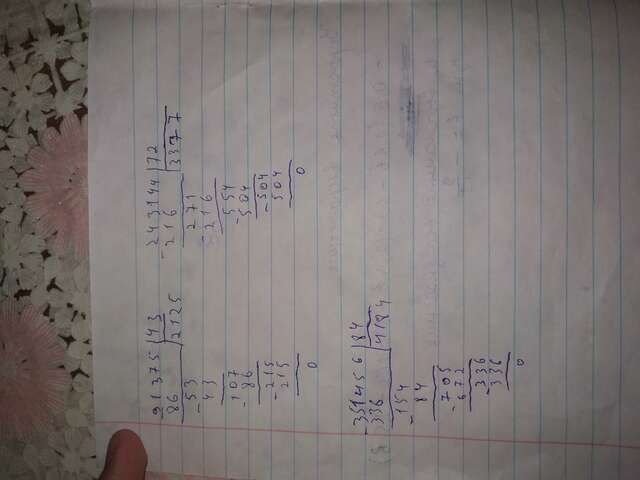 -91375 |43
86 |2125
-53
43
-107
86
-215
215
0
-243144 |72
216 |3377
271
216
-554
504
-504
504
0
-351456 |84
336 |4184
-154
84
-705
672
-336
336
0